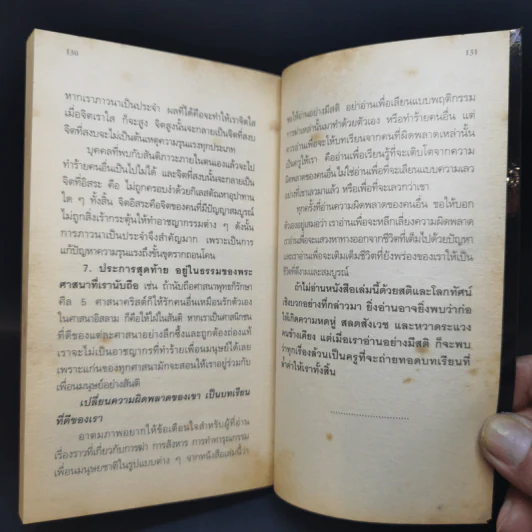 130
หากเราภาวนาเป็นประจำ ผลที่ได้คือจะทำให้เราจิตใส
เมื่อจิตเราใส ก็จะสูง จิตสูงนั้นจะกลายเป็นจิตที่สงบ
จิตที่สงบจะไม่เป็นต้นเหตุความรุนแรงทุกประเภท
บุคคลที่พบกับสันติภาวะภายในตนเองแล้วจะไป
ทำร้ายคนอื่นเป็นไปไม่ได้ และจิตที่สงบนั้นจะกลายเป็น
จิตที่อิสระ คือ ไม่ถูกครอบงำด้วยกิเลสตัณหาอุปาทาน
ใด ๆ ทั้งสิ้น จิตอิสระคือจิตของคนที่มีปัญญาสมบูรณ์
ไม่ถูกสิ่งเร้ากระตุ้นให้ทำอาชญากรรมต่าง ๆ ดังนั้น
การภาวนาเป็นประจำจึงสำคัญมาก เพราะเป็นการ
แก้ปัญหาความรุนแรงถึงขั้นขุดรากถอนโคน
7. ประการสุดท้าย อยู่ในธรรมของพระ
ศาสนาที่เรานับถือ เช่น ถ้านับถือศาสนาพุทธก็รักษา
ศีล 5 ศาสนาคริสต์ก็ให้รักคนอื่นเหมือนรักตัวเอง
ในศาสนาอิสลาม ก็คือให้ใฝ่ในสันติ หากเราเป็นศาสนิกชน
ที่ดีของแต่ละศาสนาอย่างลึกซึ้งและถูกต้องถ่องแท้
เราจะไม่เป็นอาชญากรที่ทำร้ายเพื่อนมนุษย์ได้เลย
เพราะแก่นของทุกศาสนามักจะสอนให้เราอยู่ร่วมกับ
เพื่อนมนุษย์อย่างสันติ
เปลี่ยนความผิดพลาดของเขา เป็นบทเรียน
ที่ดีของเรา
อาตมภาพอยากให้ข้อเตือนใจสำหรับผู้ที่อ่าน
เรื่องราวที่เกี่ยวกับการฆ่า การสังหาร การทำทารุณกรรม
เพื่อนมนุษยชาติในรูปแบบต่าง ๆ จากหนังสือเล่มนี้ว่า
131
ขอให้อ่านอย่างมีสติ อย่าอ่านเพื่อเลียนแบบพฤติกรรม
การฆ่าเหล่านั้นมาทำด้วยตัวเอง หรือทำร้ายคนอื่น แต่
ควรอ่านเพื่อจะให้บทเรียนจากคนที่ผิดพลาดเหล่านั้น
เป็นครูให้เรา คืออ่านเพื่อเรียนรู้ที่จะเติบโตจากความ
ผิดพลาดของคนอื่น ไม่ใช่อ่านเพื่อที่จะเลียนแบบความเลว
อย่างที่เขาเลวมาแล้ว หรือเพื่อที่จะเลวกว่าเขา
ทุกครั้งที่อ่านความผิดพลาดของคนอื่น ขอให้บอก
ตัวเองอยู่เสมอว่า เราอ่านเพื่อจะหลีกเลี่ยงความผิดพลาด
เราอ่านเพื่อจะแสวงหาทางออกจากชีวิตที่เต็มไปด้วยปัญหา
และเราอ่านเพื่อจะเติมชีวิตที่ยังพร่องของเราให้เป็น
ชีวิตที่ดีงามและสมบูรณ์
ถ้าไม่อ่านหนังสือเล่มนี้ด้วยสติและโลกทัศน์
เชิงบวกอย่างที่กล่าวมา ยิ่งอ่านอาจยิ่งพบว่าก่อ
ให้เกิดความหดหู่ สลดสังเวช และหวาดระแวง
คนข้างเคียง แต่เมื่อเราอ่านอย่างมีสติ ก็จะพบ
ว่าทุกเรื่องล้วนเป็นครูที่จะถ่ายทอดบทเรียนที่
ล้ำค่าให้เราทั้งสิ้น
........................